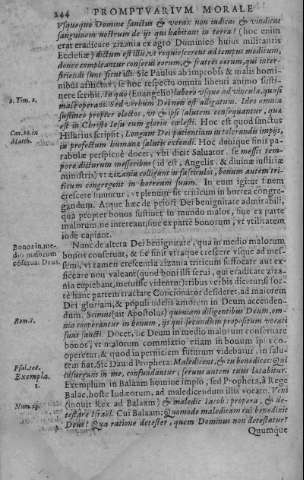 244 PROMPTVARIVM MORALE
Vsquequo Domine sanctus & verax non iudicas & vindicas
sanguinem nostrum de ijs qui habitant in terra? (hoc enim
etat eradicare zizania ex agro Dominico huius militantis
Ecclesiæ) dictum est illi, vt requiescerent ad tempus modicum,
donec compleantur conserui eorum, & fratres eorum, qui inter-
ficiendi sunt sicut illi. Sic Paulus ab improbis & malis homi-
nibus afflictus, se hoc respectu omnia libenti animo sustine-
2. Tim. 2.
re scribit. In quo (Euangelio) laboro vsque ad vincula, quasi
male operans: Sed verbum Dei non est alligatum. Ideo omnia
sustineo propter electos, vt & ipsi salutem consequantur, quæ
est in Christo Iesu cum gloria cœlesti. Hoc est quod sanctus
Can. 20. in
Matth.
Hilarius scripsit, Longam Dei patientiam in tolerandis impijs,
in profectum humanæ salutis extendi. Hoc denique fini pa-
rabolæ perspicitè docet, vbi dicit Saluator. Se messis tem-
pore dicturum messoribus (id est, Angelis & diuinæ iustitiæ
ministris) vt zizania colligant in fasciculos, bonum autem tri-
ticum congregent in horreum suum. In eum igitur finem
crescere sinuntur, vt plenius sit triticum in horreo congre-
gandum. Atque hæc de priori Dei benignitate admirabili,
qua propter bonos sustinet in mundo malos, siue ex parte
malorum, ne intereant; siue ex parte bonorum, vt vtilitatem
inde capiant.
Bonos in me-
dio malorum
conseruat Deus.
Nunc de altera Dei benignitate, qua in medio malorum
bonos conseruat, & sic sinit vtraque crescere vsque ad mes-
sem, vt tamen crescentia zizania triticum suffocare aut ex-
siccare non valeant (quod boni illi serui, qui eradicare ziza-
nia cupiebant, metuisse videntur) tribus verbis dicemus: so-
let hanc partem tractare Concionator desideret ad maiorem
Dei gloriam, & populi fidelis amorem in Deum accenden-
Rom. 8.
dum. Scimus (ait Apostolus) quoniam diligentibus Deum, om-
nia cooperantur in bonum, ijs qui secundum propositum vocati
sunt sancti. Docet, sic Deum in medio malorum conseruare
bonos, vt malorum commixtio etiam in bonum ipsis co-
operetur, & quod in perniciem futurum videbatur, in salu-
Psal. 108.
tem fiat. Sic Dauid Propheta: Maledicent illi, & tu benedices: Qui
insurgunt in me, confundantur: seruus autem tuus lætabitur.
Exempla.
1.
Exemplum in Balaam homine impio, sed Propheta, à Rege
Balac, hoste Iudæorum, ad maledicendum illis vocato. Veni
Num. 23.
(inquit Rex ad Balaam) & maledic Iacob: propera, & de-
testare Israel. Cui Balaam: Quomodo maledicam cui benedixit
Deus? Qua ratione detester, quem Dominus non detestatur?
Quumque